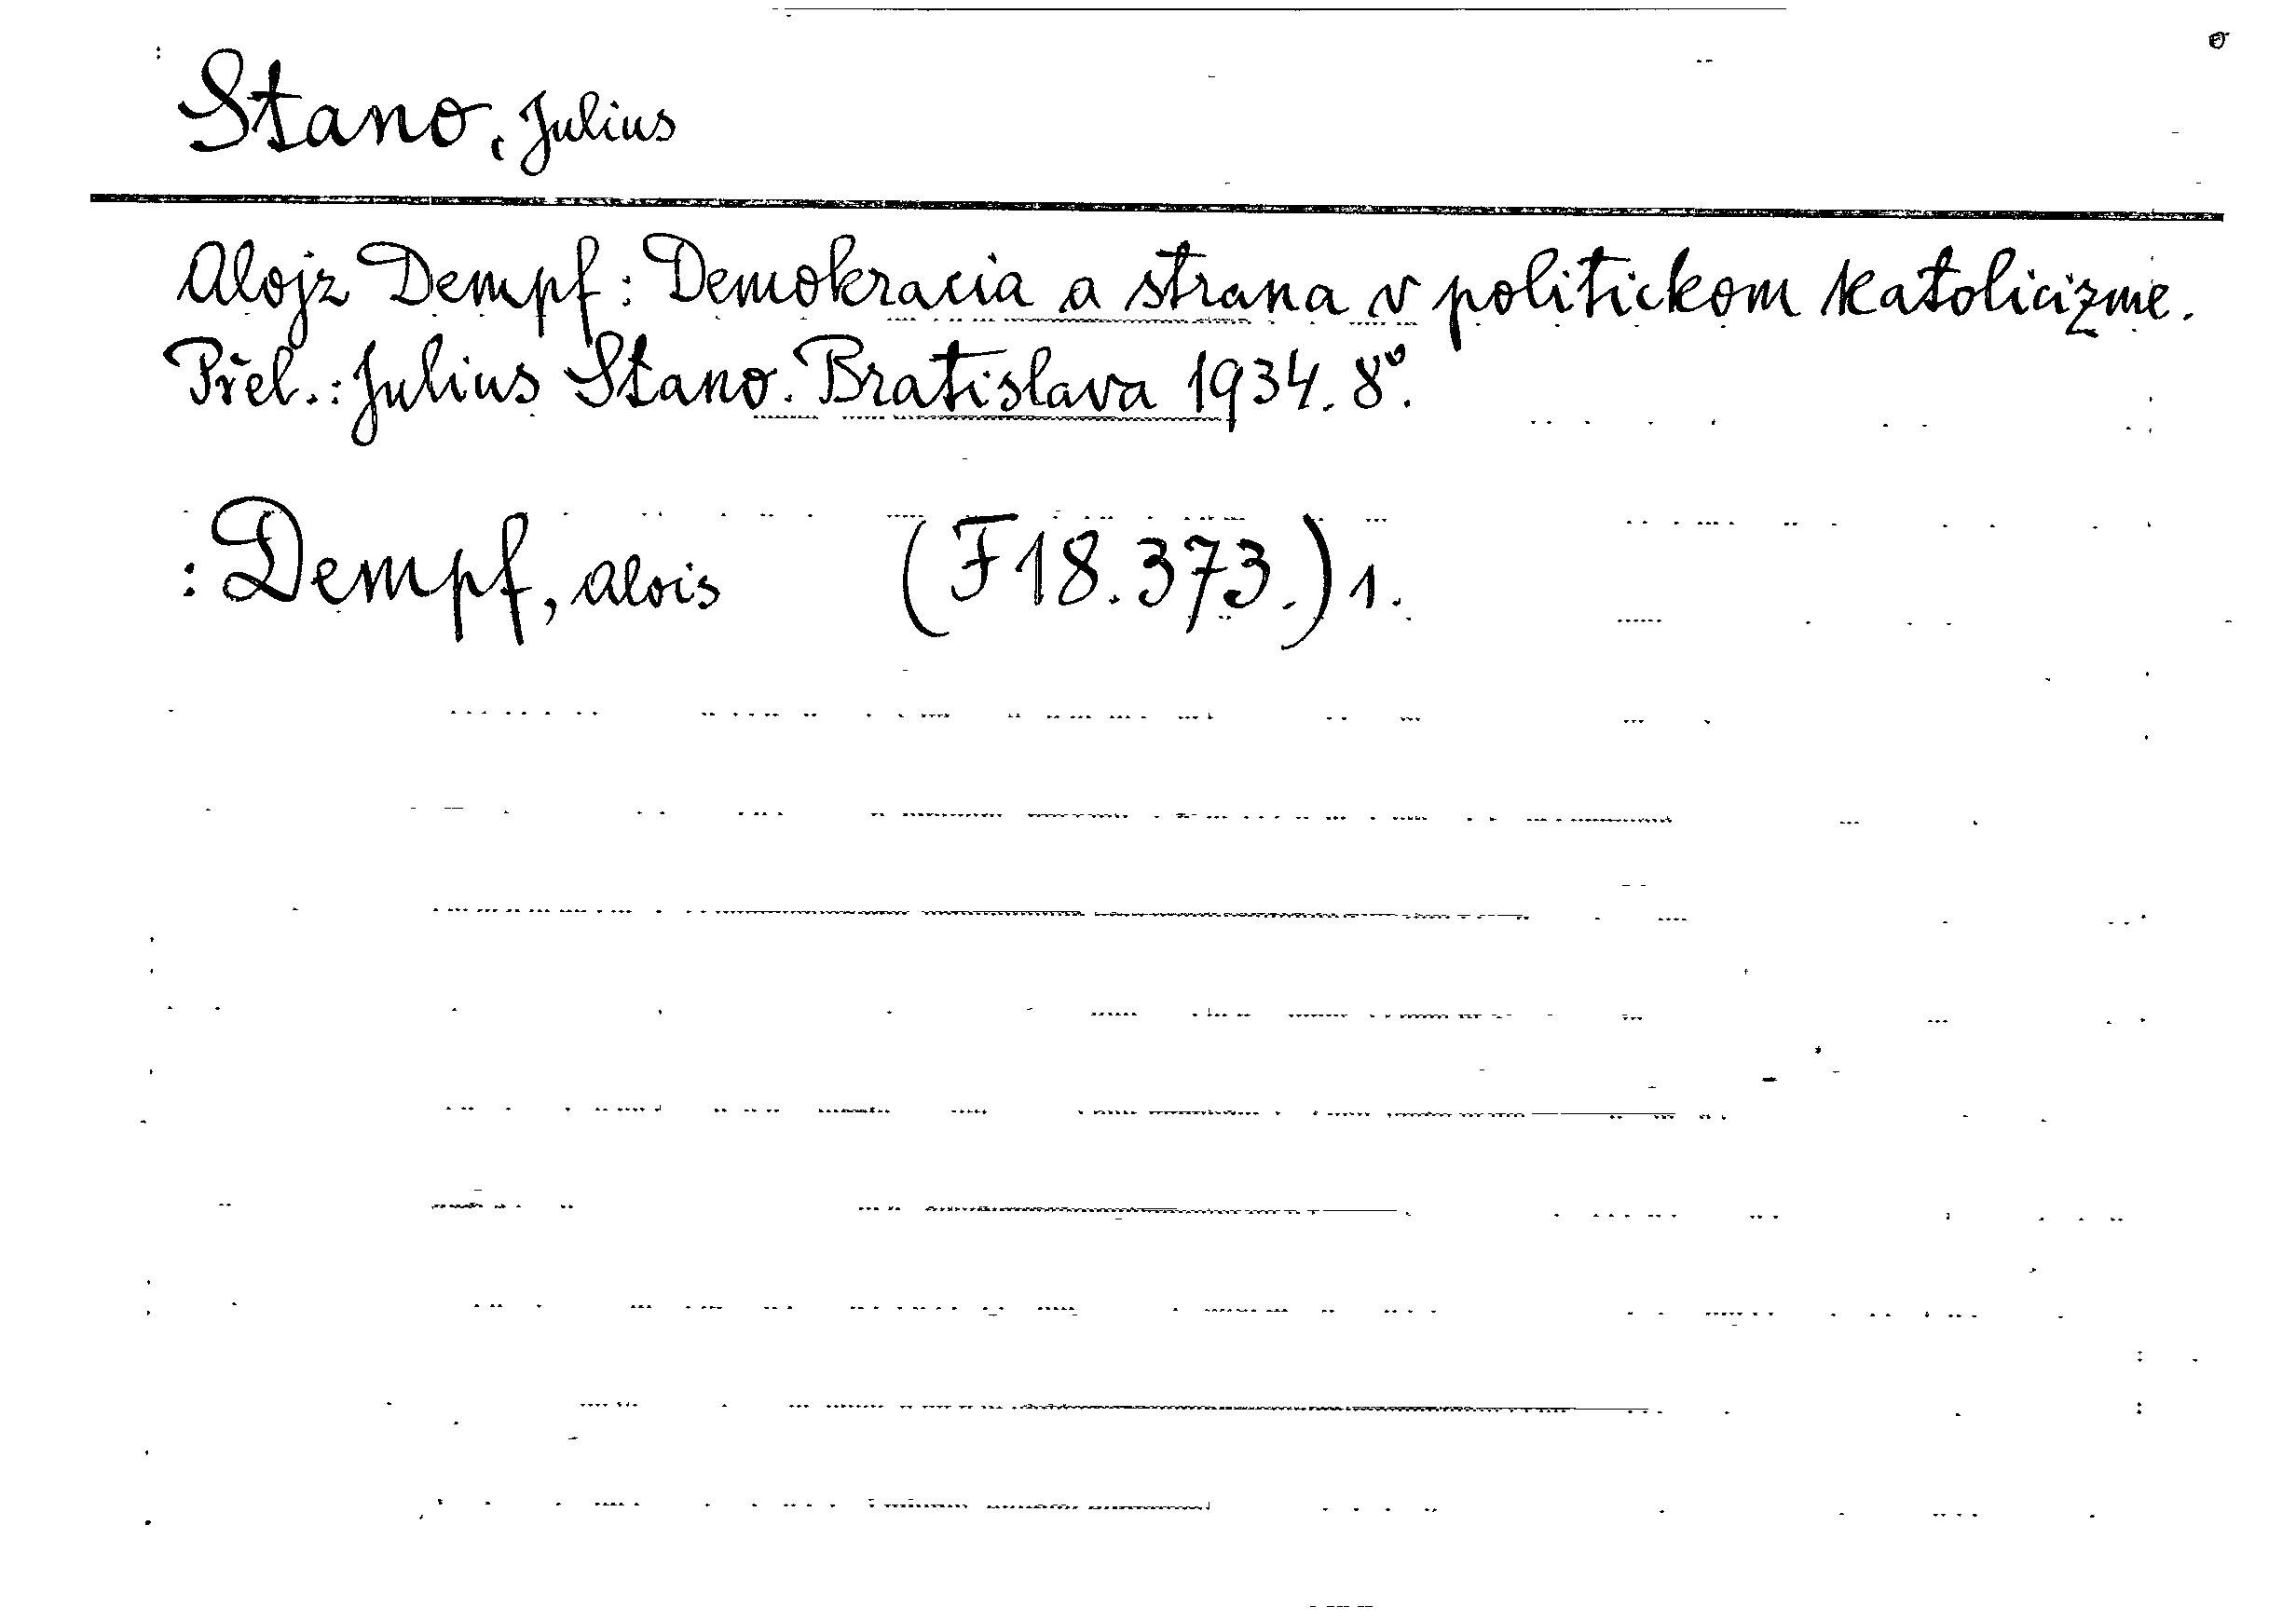 Stano, Julius
Alojz Dempf: Demokracia a strana v politickom katolicizme.
Přel.: Julius Stano. Bratislava 1934. 8°.
: Dempf, Alois (F18.373.) 1.